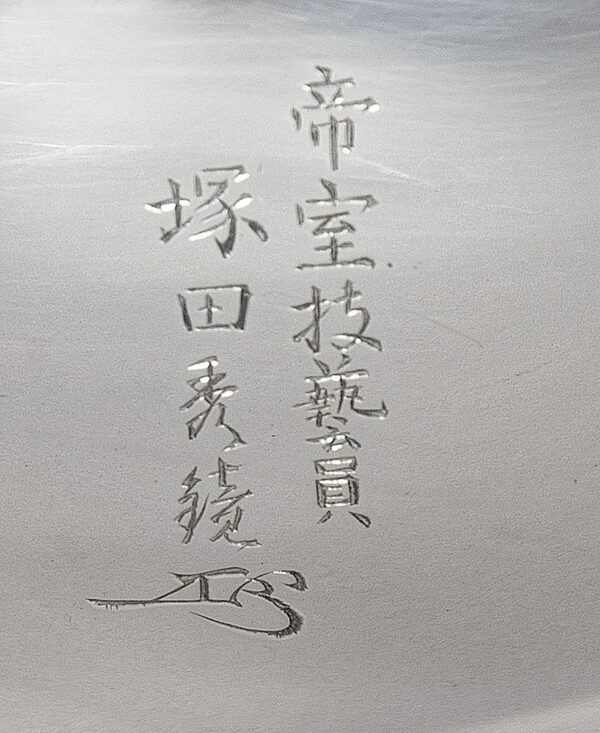 帝室技藝員
塚田秀鏡